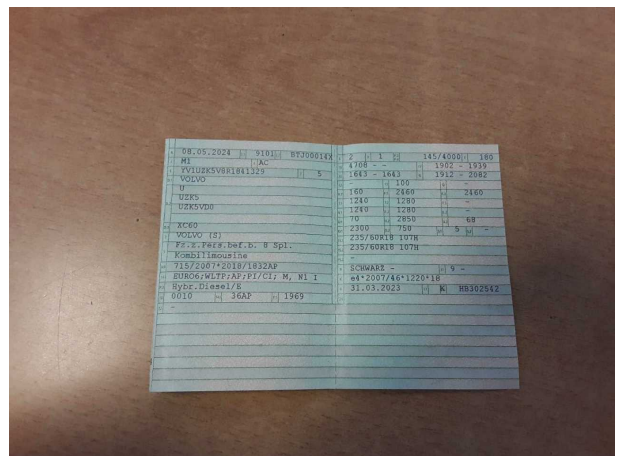 08.05.2024 9101 BTJ00014X
M1 AC
YV1UZK5V8R1841329 5
VOLVO
U
UZK5
UZK5VD0
XC60
VOLVO (S)
Fz.z.Pers.bef.b. 8 Spl.
Kombilimousine
715/2007*2018/1832AP
EURO6;WLTP;AP;PI/CI; M, N1 I
Hybr.Diesel/E
0010 36AP 1969
-
2 1 145/4000 180
4708 - - 1902 - 1939
1643 - 1643 1912 - 2082
- 100 -
160 2460 2460
1240 1280 -
1240 1280 -
70 2850 68
2300 750 5 -
235/60R18 107H
235/60R18 107H
-
SCHWARZ - 9 -
e4*2007/46*1220*18
31.03.2023 K HB302542